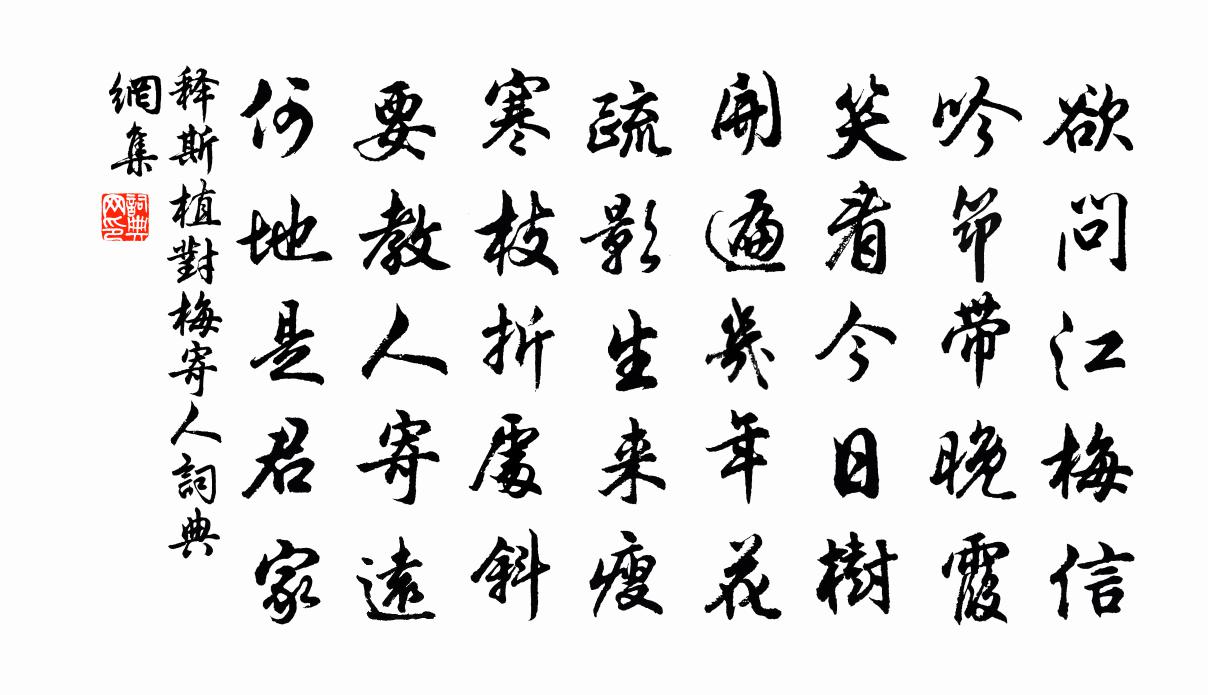 欲問江梅信
吟笻帶晚霞
笑看今日樹
開遍幾年花
疏影生来瘦
寒枝折處斜
要教人寄遠
何地是君家
释斯植對梅寄人詞典
網集
詞典
网印